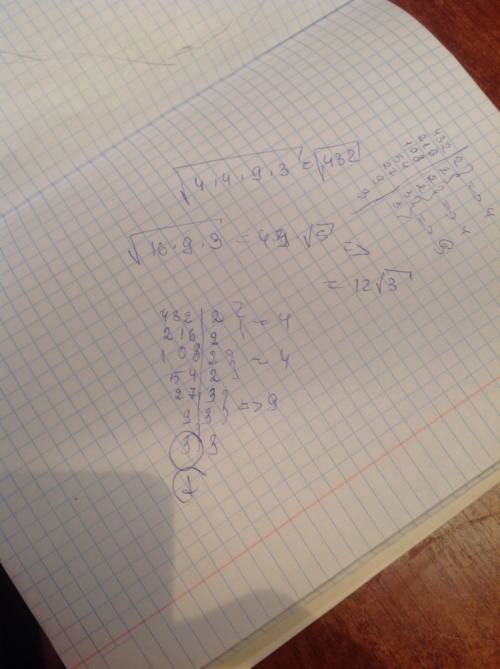 √4·4·9·3 = √432
√16·9·3 = 4·3·√3 =>
= 12√3
432 | 2 } = 4
216 | 2
108 | 2 } = 4
54 | 2
27 | 3 } => 9
9 | 3
3 | 3
1